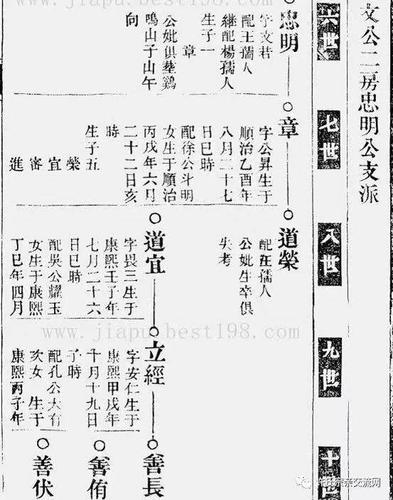 文公二房忠明公支派
六世
七世
八世
九世
十
忠明
字文若
配王孺人
繼配楊孺人
生子一
章
公妣俱塟鷄
鳴山子山午
向
章
字公昇生于
順治乙酉年
八月二十七
日巳時
配徐公斗明
女生于順治
丙戌年六月
二十二日亥
時
生子五
榮宜審進
道榮
配汪孺人
公妣生卒俱
失考
道宜
字畏三生于
康熙壬子年
七月二十六
日巳時
配吳公耀玉
女生于康熙
丁巳年四月
立經
字安仁生于
康熙甲戌年
十月十九日
子時
配孔公大有
次女生于
康熙丙子年
善長
善侑
善伏
www.jiapu.best198.com